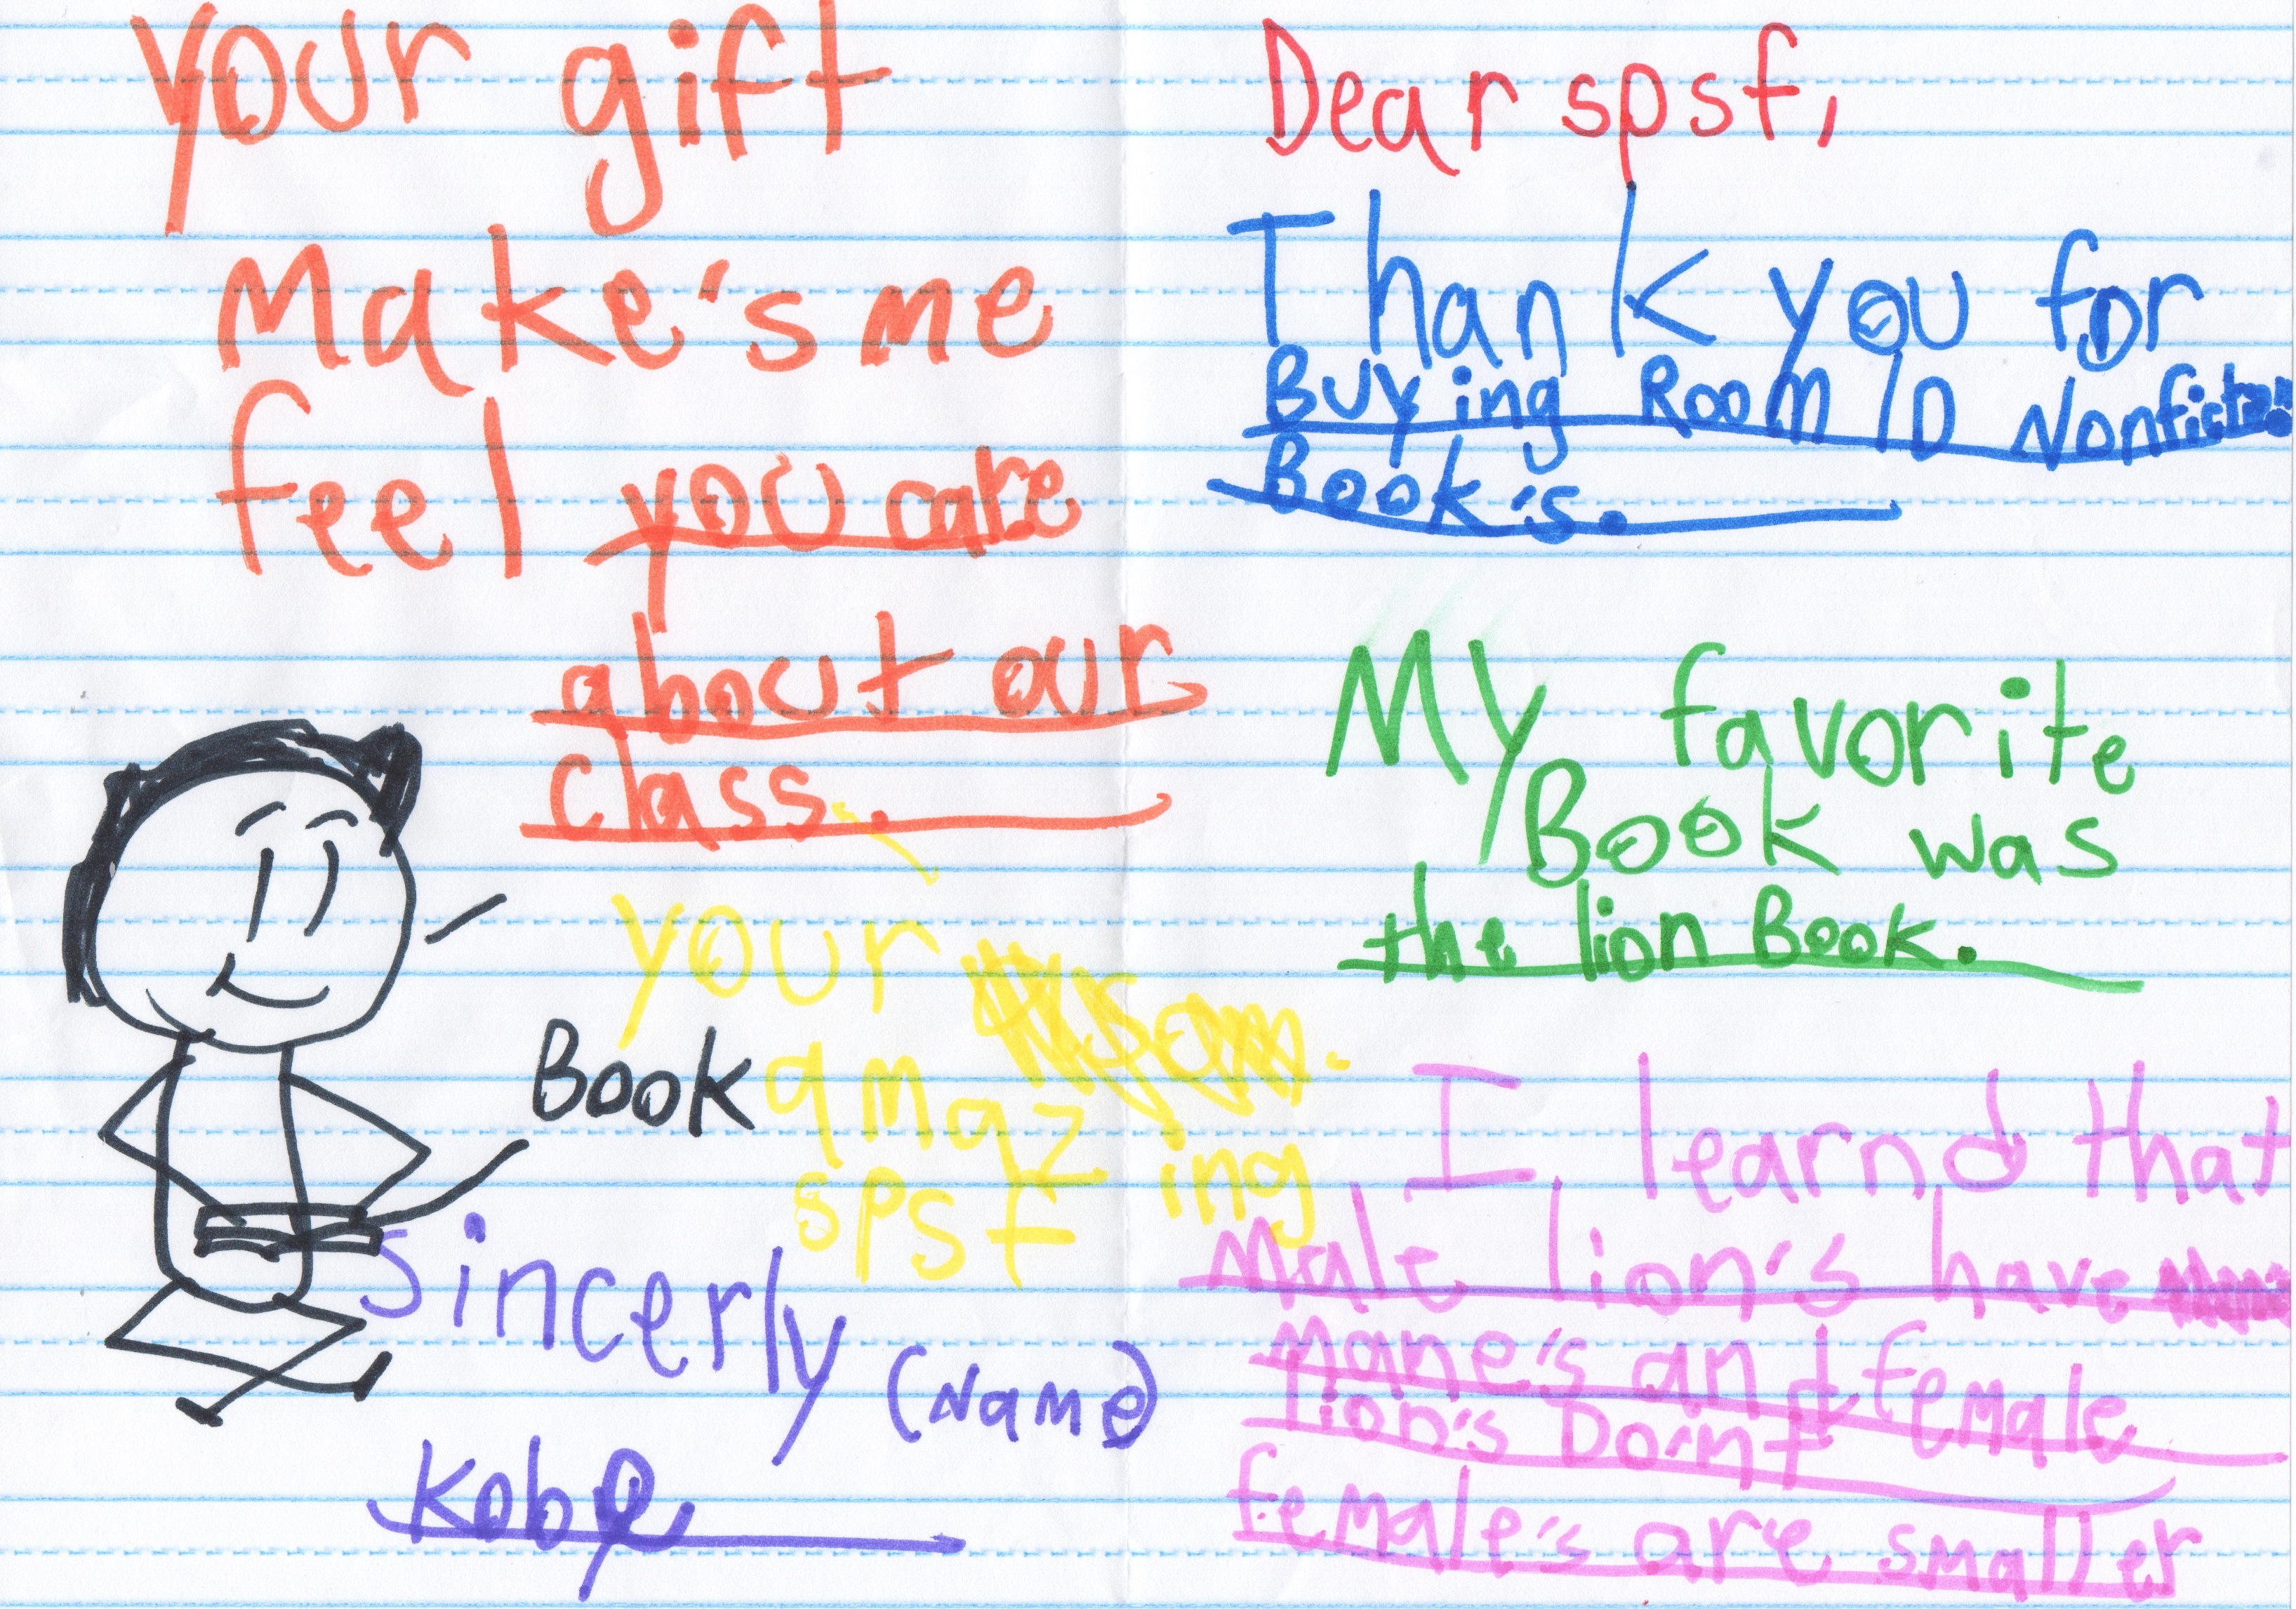 Dear spsf,
Thank you for
Buying Room 10 Nonfiction
Book's.
My favorite
Book was
the lion Book.
I learnd that
Male lion's have
Mane's and female
lion's Do'nt
female's are smaller
your gift
Make's me
feel you care
about our
class.
your
amazing
spsf
Book
Sincerly (Name)
Kobe